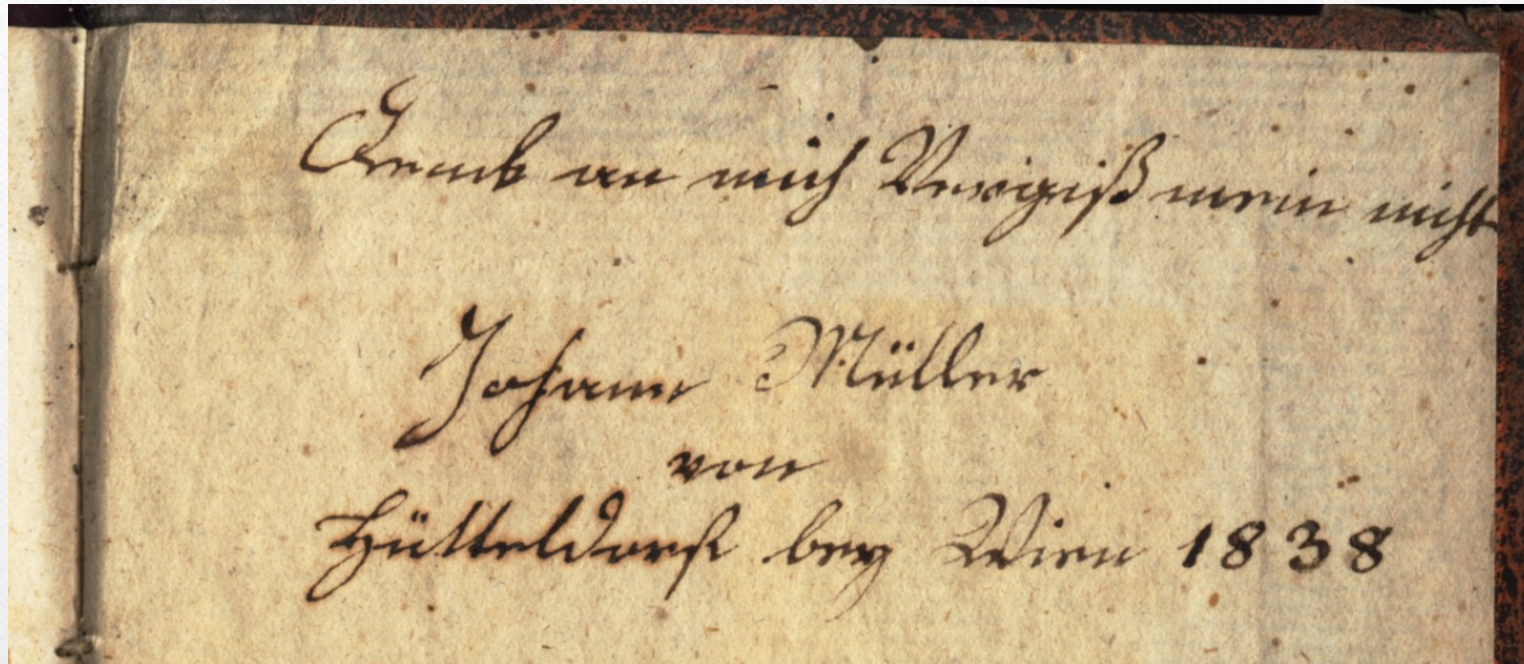 Denk an mich Vergiß mein nicht
Johann Müller
von
Hütteldorf bey Wien 1838